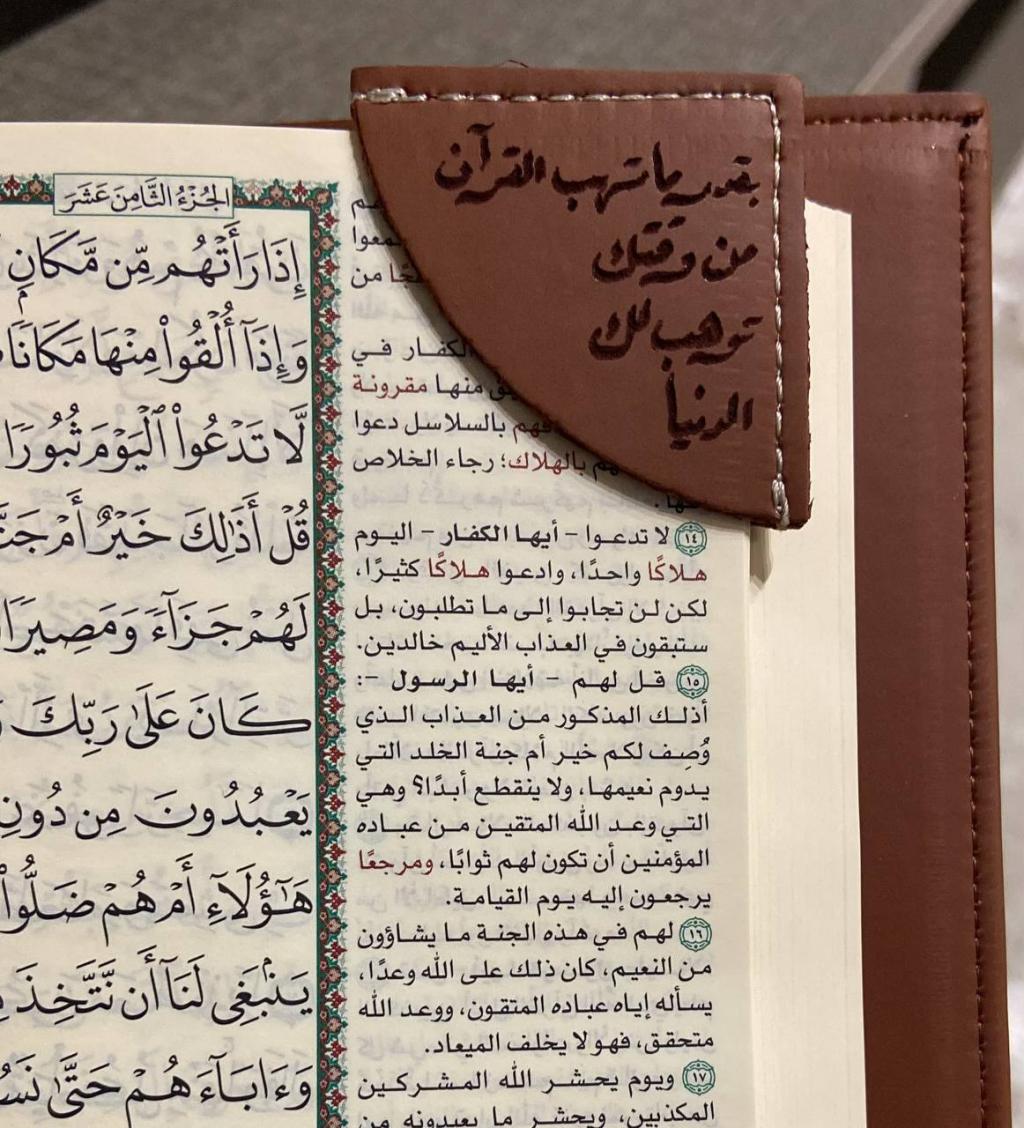 بقدر ما تهب القرآن
من وقتك
توهب لك
الدنيا
الجُزْءُ الثَّامِنَ عَشَرَ
إِذَا رَأَتْهُم مِّن مَّكَانٍ
وَإِذَآ أُلْقُوا۟ مِنْهَا مَكَانًا
لَّا تَدْعُوا۟ ٱلْيَوْمَ ثُبُورًا
قُلْ أَذَٰلِكَ خَيْرٌ أَمْ
لَهُمْ جَزَآءً وَمَصِيرًا
كَانَ عَلَىٰ رَبِّكَ
يَعْبُدُونَ مِن دُونِ
هَٰٓؤُلَآءِ أَمْ هُمْ ضَلُّوا۟
يَنۢبَغِى لَنَآ أَن نَّتَّخِذَ
وَءَابَآءَهُمْ حَتَّىٰ
من
الكفار في
منها مقرونة
بالسلاسل دعوا
بالهلاك؛ رجاء الخلاص
١٤ لا تدعوا - أيها الكفار - اليوم
هلاكًا واحدًا، وادعوا هلاكًا كثيرًا،
لكن لن تجابوا إلى ما تطلبون، بل
ستبقون في العذاب الأليم خالدين.
١٥ قل لهم - أيها الرسول -:
أذلك المذكور من العذاب الذي
وُصِف لكم خير أم جنة الخلد التي
يدوم نعيمها، ولا ينقطع أبدًا؟ وهي
التي وعد الله المتقين من عباده
المؤمنين أن تكون لهم ثوابًا، ومرجعًا
يرجعون إليه يوم القيامة.
١٦ لهم في هذه الجنة ما يشاؤون
من النعيم، كان ذلك على الله وعدًا،
يسأله إياه عباده المتقون، ووعد الله
متحقق، فهو لا يخلف الميعاد.
١٧ ويوم يحشر الله المشركين
المكذبين، ويحشر ما يعبدونه من